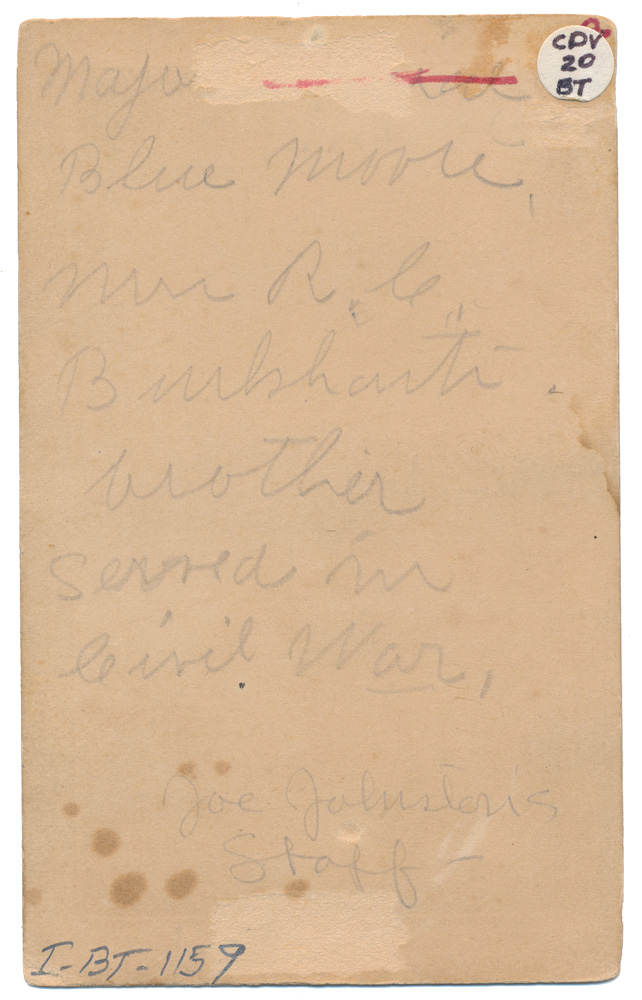 CDV
20
BT
Major
Blue Moore,
Mrs R. C.
Burkhardt.
brother
served in
Civil War,
Joe Johnston's
Staff -
I-BT-1159